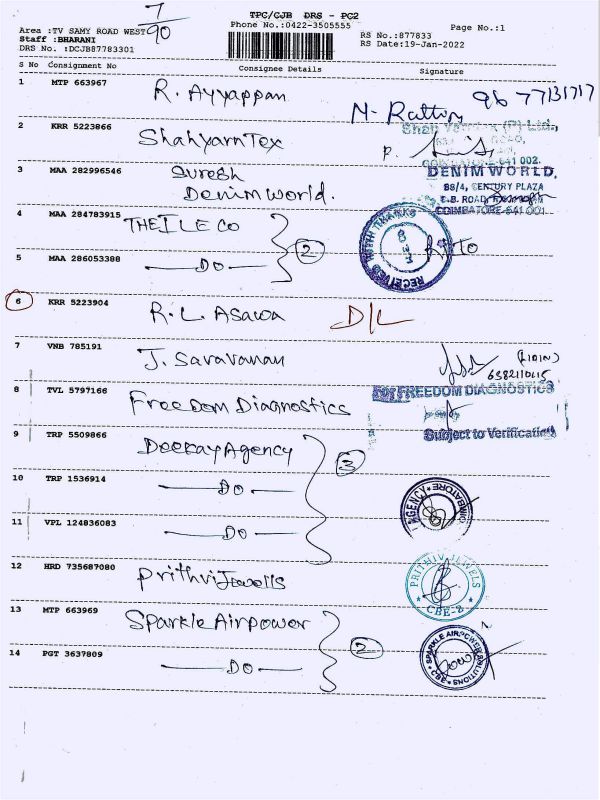 7
90
TPC/CJB DRS - PC2
Phone No.:0422-3505555
Page No.:1
Area :TV SAMY ROAD WEST
Staff :BHARANI
DRS No. :DCJB87783301
RS No.:877833
RS Date:19-Jan-2022
S No Consignment No Consignee Details Signature
1 MTP 663967 R. Ayyappan 96 77131717
2 KRR 5223866 ShahyarnTex
COIMBATORE-641 002.
3 MAA 282996546 Suresh
Denimworld.
DENIM WORLD,
88/4, CENTURY PLAZA
COIMBATORE-641 001
4 MAA 284783915 THE ILE CO
5 MAA 286053388 DO 2
RECEIVED WITH THANKS
6 KRR 5223904 R.L. Asawa D/L
7 VNB 785191 J. Saravanan
8 TVL 5797166 Freedom Diagnostics
For FREEDOM DIAGNOSTICS
Subject to Verification
9 TRP 5509866 Deekay Agency
10 TRP 1536914 DO 3
AGENCY COIMBATORE
11 VPL 124836083 DO
12 HRD 735687080 Prithvi Jewells
PRITHIV JEWELS
CBE-2
13 MTP 663969 Sparkle Airpower
14 PGT 3637809 DO 2
SPARKLE AIRPOWER SOLUTIONS
CBE